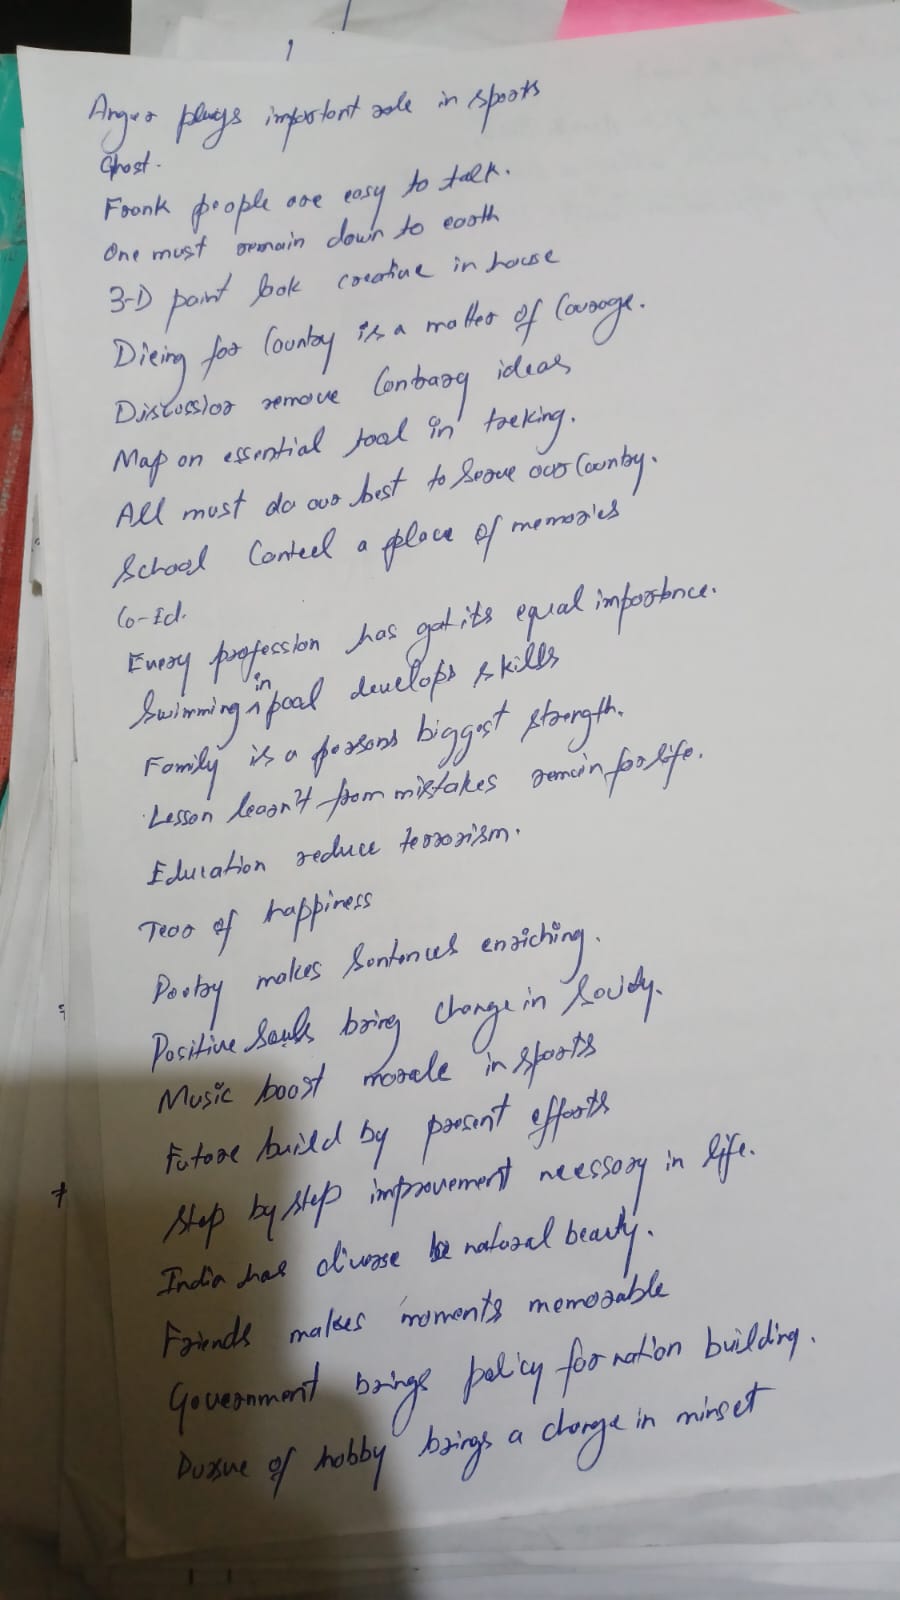 1
Anger plays important role in sports
Ghost.
Frank people are easy to talk.
One must remain down to earth
3-D paint look creative in house
Dieing for Country is a matter of Courage.
Discussion remove Contrary ideas
Map an essential tool in treking.
All must do our best to Serve our Country.
School Canteel a place of memories
Co-Ed.
Every profession has got its equal importance.
Swimming in pool develops skills
Family is a persons biggest strength.
Lesson learn't from mistakes remain for life.
Education reduce terrorism.
Tear of happiness
Poetry makes Sentences enriching.
Positive Souls bring change in Society.
Music boost morale in sports
Future build by present efforts
Step by step improvement necessary in life.
India has diverse natural beauty.
Friends makes moments memorable
Government brings policy for nation building.
Pursue of hobby brings a change in minset